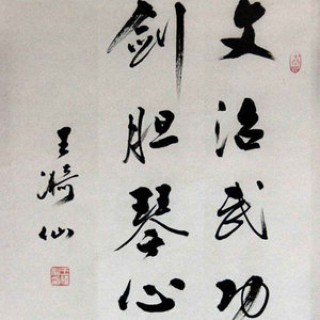 文治武功
剑胆琴心
王漪仙